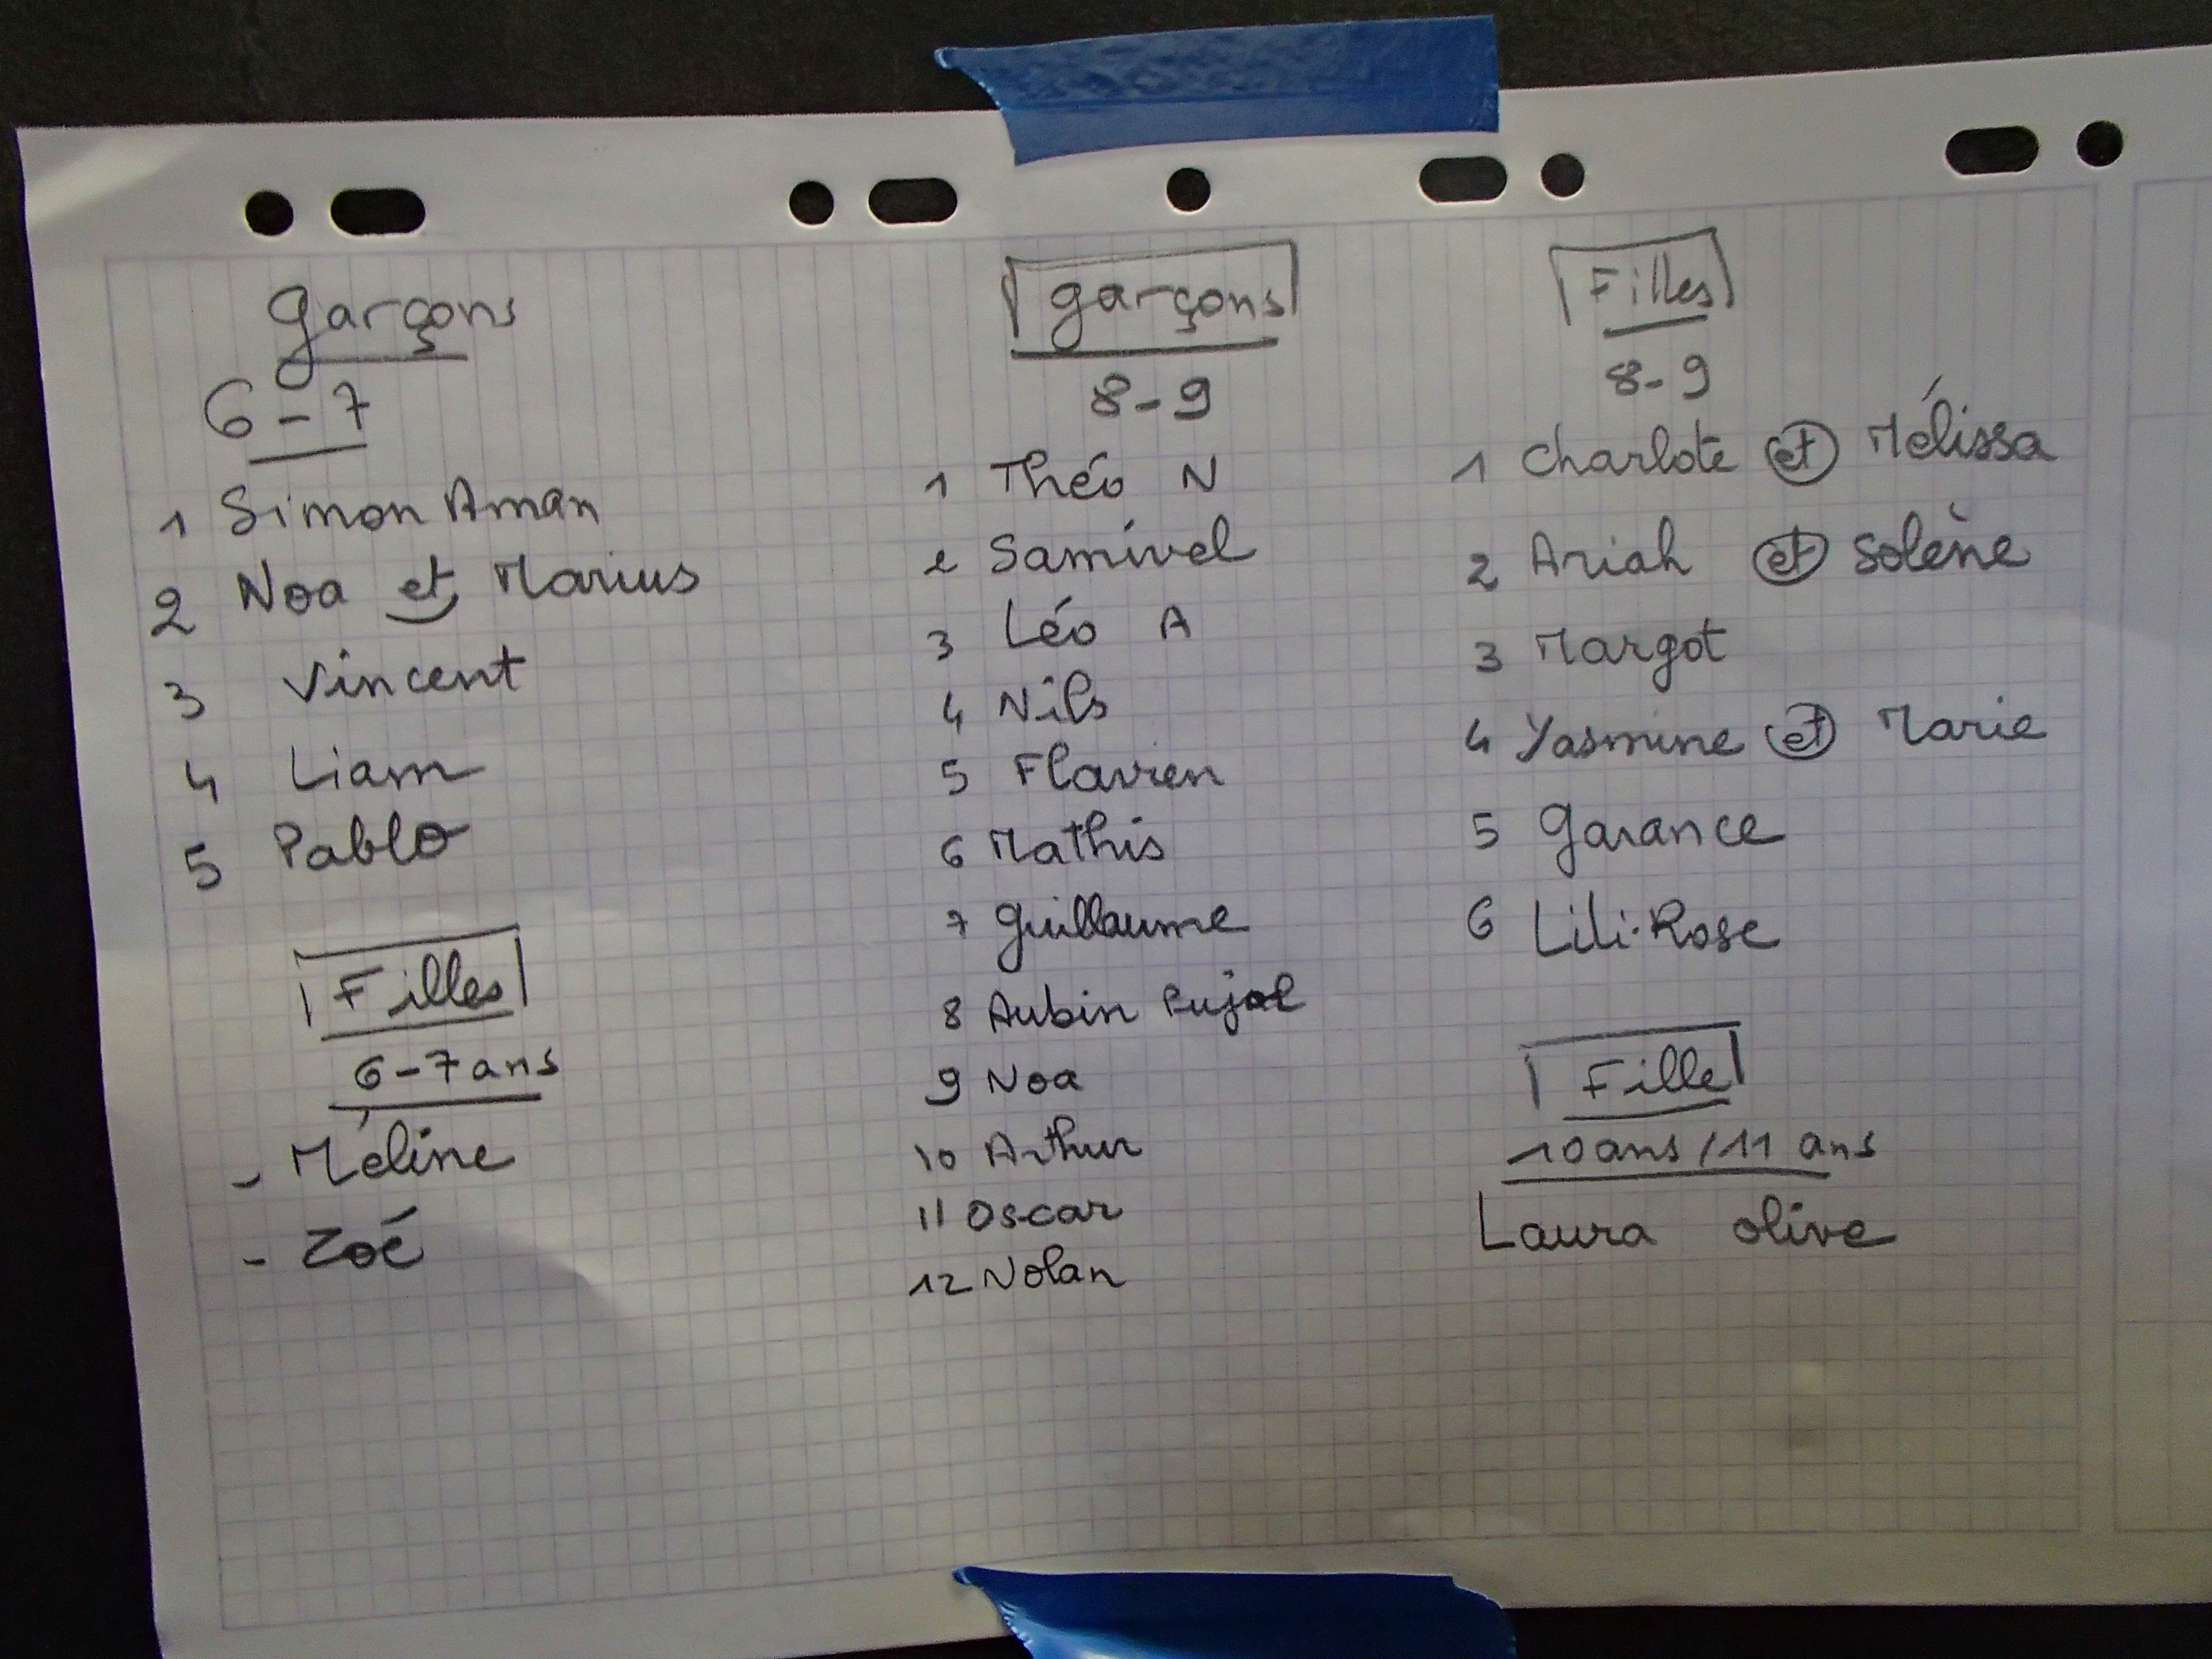 garçons
6-7
1 Simon Aman
2 Noa et Marius
3 Vincent
4 Liam
5 Pablo
Filles
6-7 ans
- Méline
- Zoé
garçons
8-9
1 Théo N
2 Samivel
3 Léo A
4 Nils
5 Flavien
6 Mathis
7 Guillaume
8 Aubin Pujol
9 Noa
10 Arthur
11 Oscar
12 Nolan
Filles
8-9
1 Charlote et Mélissa
2 Ariah et Solène
3 Margot
4 Yasmine et Marie
5 Garance
6 Lili-Rose
Fille
10 ans / 11 ans
Laura olive